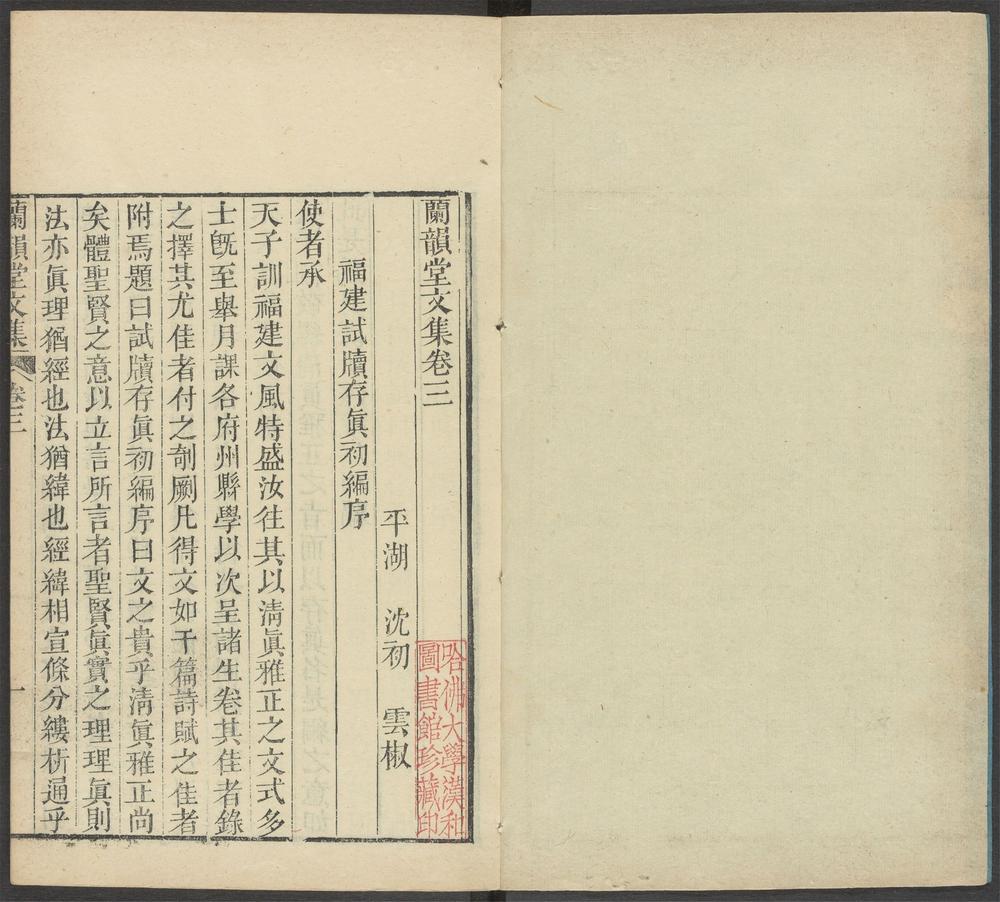 蘭韻堂文集卷三
平湖 沈初 雲椒
福建試牘存眞初編序
使者承
天子訓福建文風特盛汝往其以淸眞雅正之文式多
士旣至舉月課各府州縣學以次呈諸生卷其佳者錄
之擇其尤佳者付之剞劂凡得文如干篇詩賦之佳者
附焉題曰試牘存眞初編序曰文之貴乎淸眞雅正尚
矣體聖賢之意以立言所言者聖賢眞實之理理眞則
法亦眞理猶經也法猶緯也經緯相宣條分縷析通乎
蘭韻堂文集 卷三 一
哈佛大學漢和
圖書館珍藏印